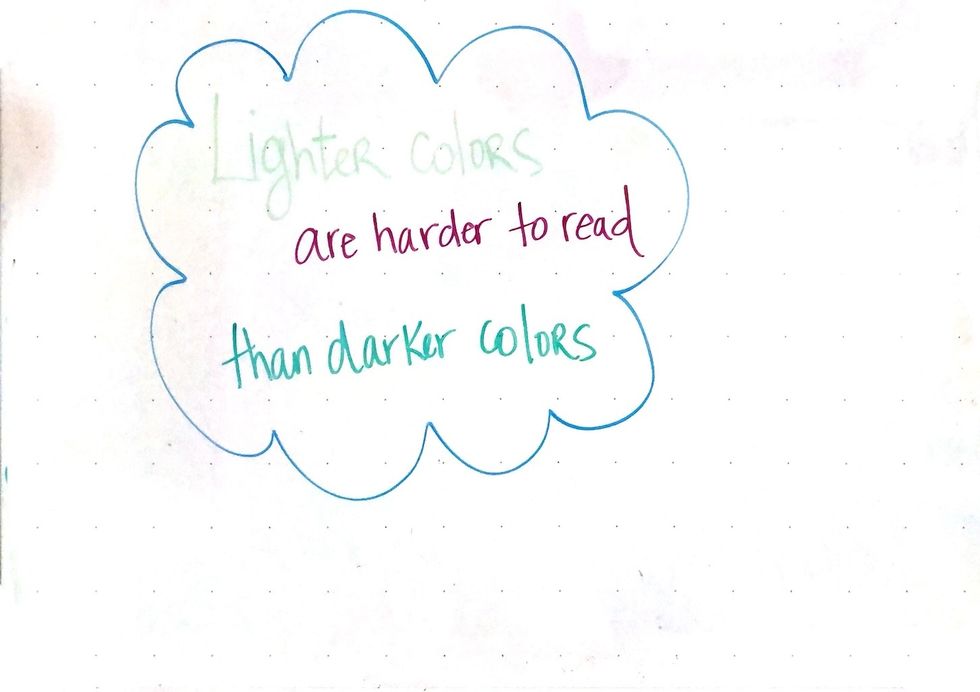 Lighter colors
are harder to read
than darker colors